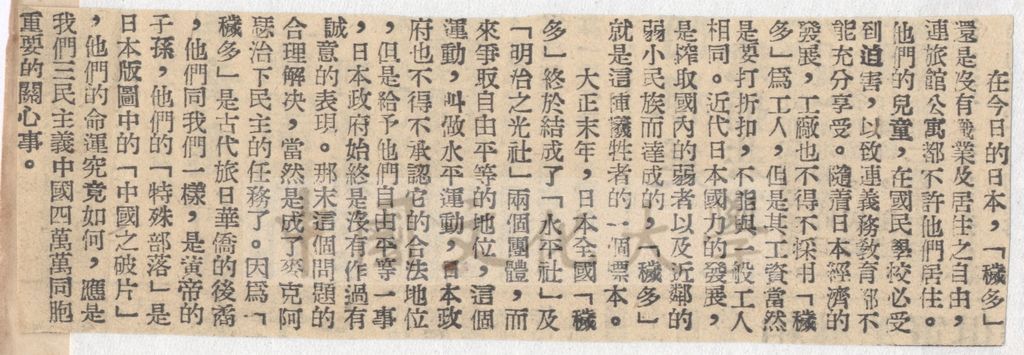 在今日的日本，「穢多」
還是沒有職業及居住之自由，
連旅館公寓都不許他們居住。
他們的兒童，在國民學校必受
到迫害，以致連義務教育都不
能充分享受。隨着日本經濟的
發展，工廠也不得不採用「穢
多」為工人，但是其工資當然
是要打折扣，不能與一般工人
相同。近代日本國力的發展，
是搾取國內的弱者以及近鄰的
弱小民族而達成的，「穢多」
就是這種犧牲者的一個標本。
大正末年，日本全國「穢
多」終於結成了「水平社」及
「明治之光社」兩個團體，而
來爭取自由平等的地位，這個
運動，叫做水平運動，日本政
府也不得不承認它的合法地位
，但是給予他們自由平等一事
，日本政府始終是沒有作過有
誠意的表現。那末這個問題的
合理解決，當然是成了麥克阿
瑟治下民主的任務了。因為「
穢多」是古代旅日華僑的後裔
，他們同我們一樣，是黃帝的
子孫，他們的「特殊部落」是
日本版圖中的「中國之破片」
，他們的命運究竟如何，應是
我們三民主義中國四萬萬同胞
重要的關心事。
中國文化大學